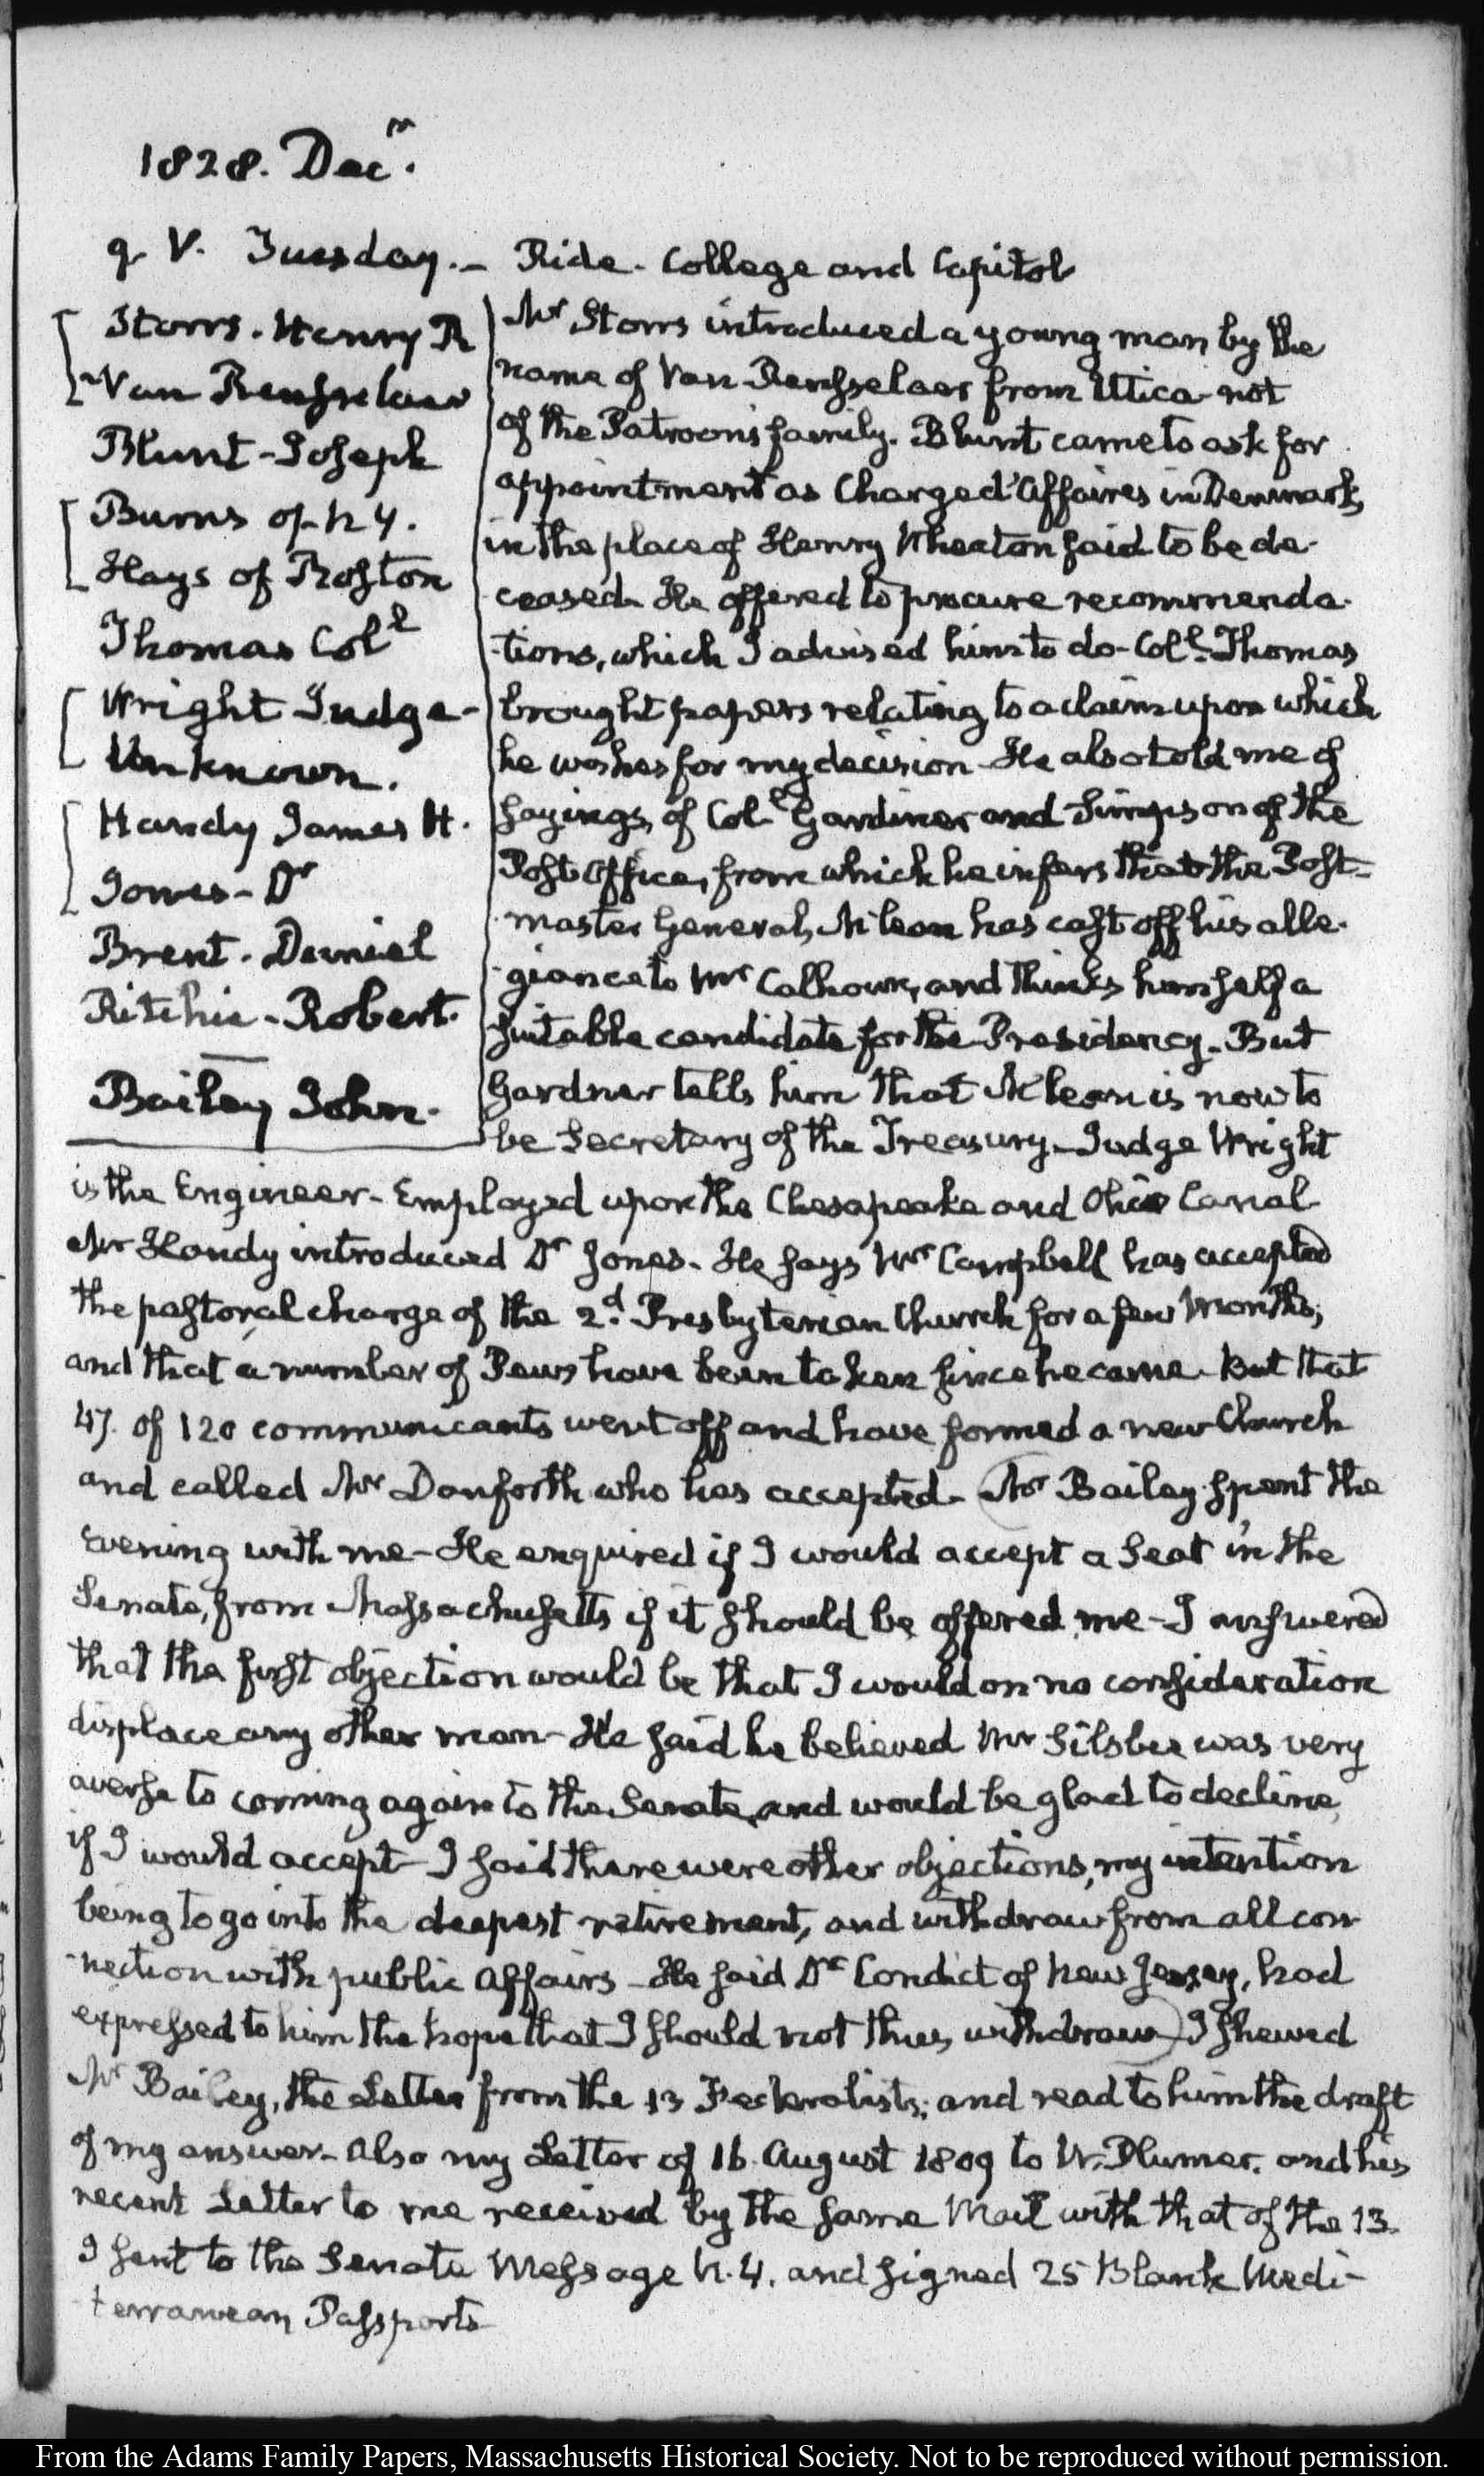 1828. Decr.
9. V. Tuesday. — Ride. College and Capitol
Storrs. Henry R
Van Rensselaer
Blunt - Joseph
Burns of N Y.
Hays of Boston
Thomas Coll
Wright Judge -
Unknown.
Handy James H.
Jones - Dr
Brent. Daniel
Ritchie - Robert.
Bailey John.
Mr Storrs introduced a young man by the
name of Van Rensselaer from Utica not
of the Patroon's family. Blunt came to ask for
appointment as Charge d'Affaires in Denmark,
in the place of Henry Wheaton said to be de-
ceased. He offered to procure recommenda-
tions, which I advised him to do - Coll. Thomas
brought papers relating to a claim upon which
he wishes for my decision - He also told me of
sayings, of Coll Gardiner and Simpson of the
Post Office, from which he infers that the Post-
master General, McLean has cast off his alle-
giance to Mr Calhoun, and thinks himself a
suitable candidate for the Presidency. But
Gardner tells him that McLean is now to
be Secretary of the Treasury - Judge Wright
is the Engineer - Employed upon the Chesapeake and Ohio Canal
Mr Handy introduced Dr Jones. He says Mr Campbell has accepted
the pastoral charge of the 2d. Presbyterian Church for a few Months;
and that a number of Pews have been taken since he came. But that
47. of 120 communicants went off and have formed a new Church
and called Mr Danforth who has accepted. Mr Bailey spent the
Evening with me - He enquired if I would accept a Seat in the
Senate, from Massachusetts if it should be offered me - I answered
that the first objection would be that I would on no consideration
displace any other man - He said he believed Mr Silsbee was very
averse to coming again to the Senate, and would be glad to decline,
if I would accept - I said there were other objections, my intention
being to go into the deepest retirement, and withdraw from all con-
nection with public Affairs - He said Dr Condict of New Jersey, had
expressed to him the hope that I should not thus withdraw) I shewed
Mr Bailey, the Letter from the 13 Federalists; and read to him the draft
of my answer - Also my Letter of 16. August 1809 to W. Plumer. and his
recent Letter to me received by the same Mail with that of the 13.
I sent to the Senate Message N. 4. and signed 25 Blank Medi-
terranean Passports
From the Adams Family Papers, Massachusetts Historical Society. Not to be reproduced without permission.